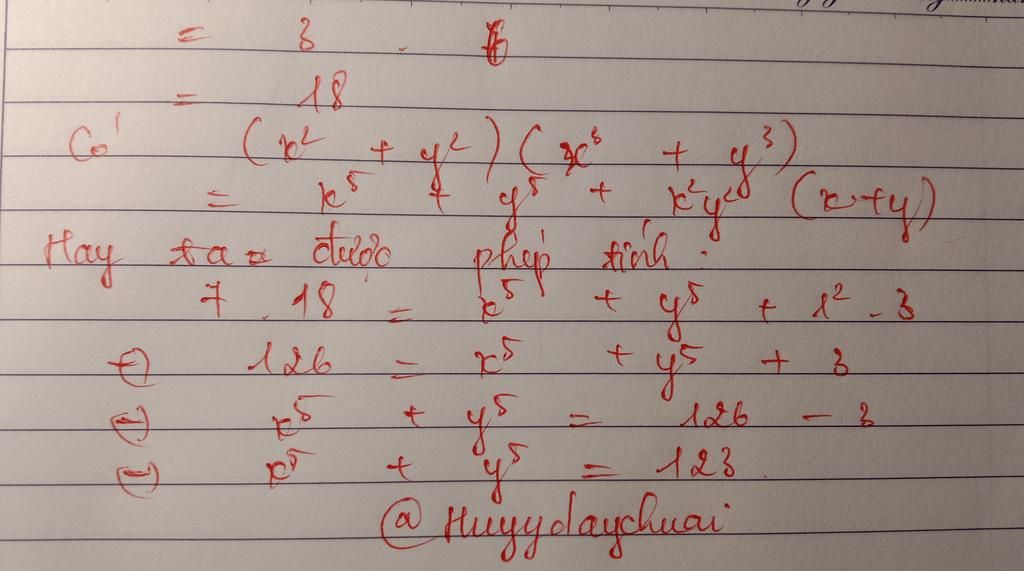 = 3 . 6
= 18
Có (x² + y²) (x³ + y³)
= x⁵ + y⁵ + x²y² (x+y)
Hay ta được phép tính:
7 . 18 = x⁵ + y⁵ + 1² . 3
⇔ 126 = x⁵ + y⁵ + 3
⇔ x⁵ + y⁵ = 126 - 3
⇔ x⁵ + y⁵ = 123.
@Huyydaychuai